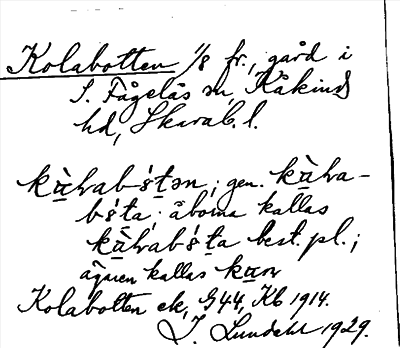 Kolabotten 1/8 fr., gård i
S. Fågelås sn, Kåkinds
hd, Skarab. l.
gen.
åborna kallas
best. pl.;
ägaren kallas
Kolabotten ek, G44, Kb 1914.
J. Lundahl 1929.